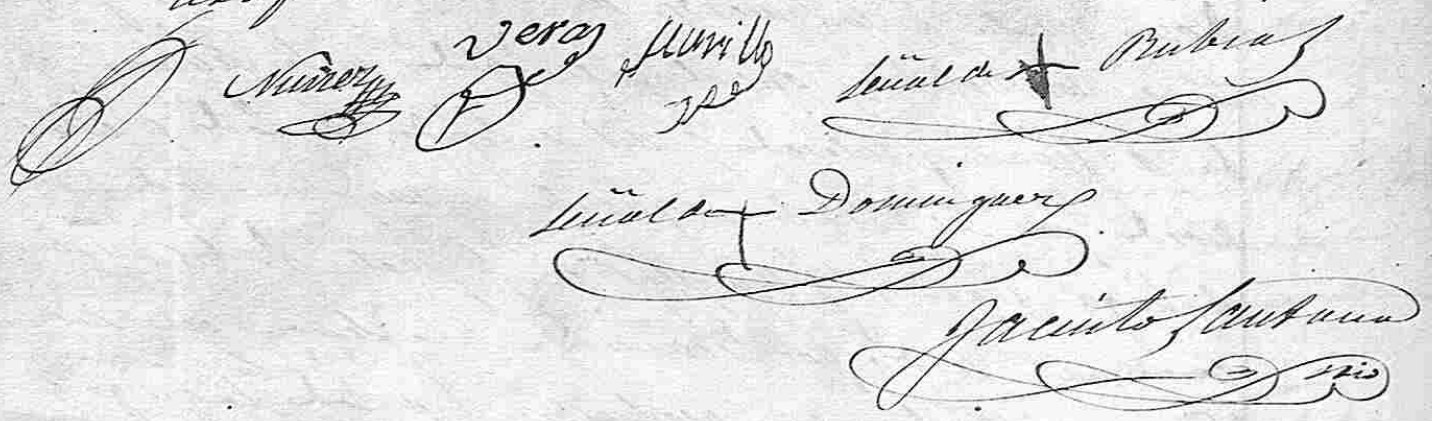 Nuñez Vera Murillo Señal de + Rubiaz
Señal de + Dominguez
Jacinto Santana
Srio